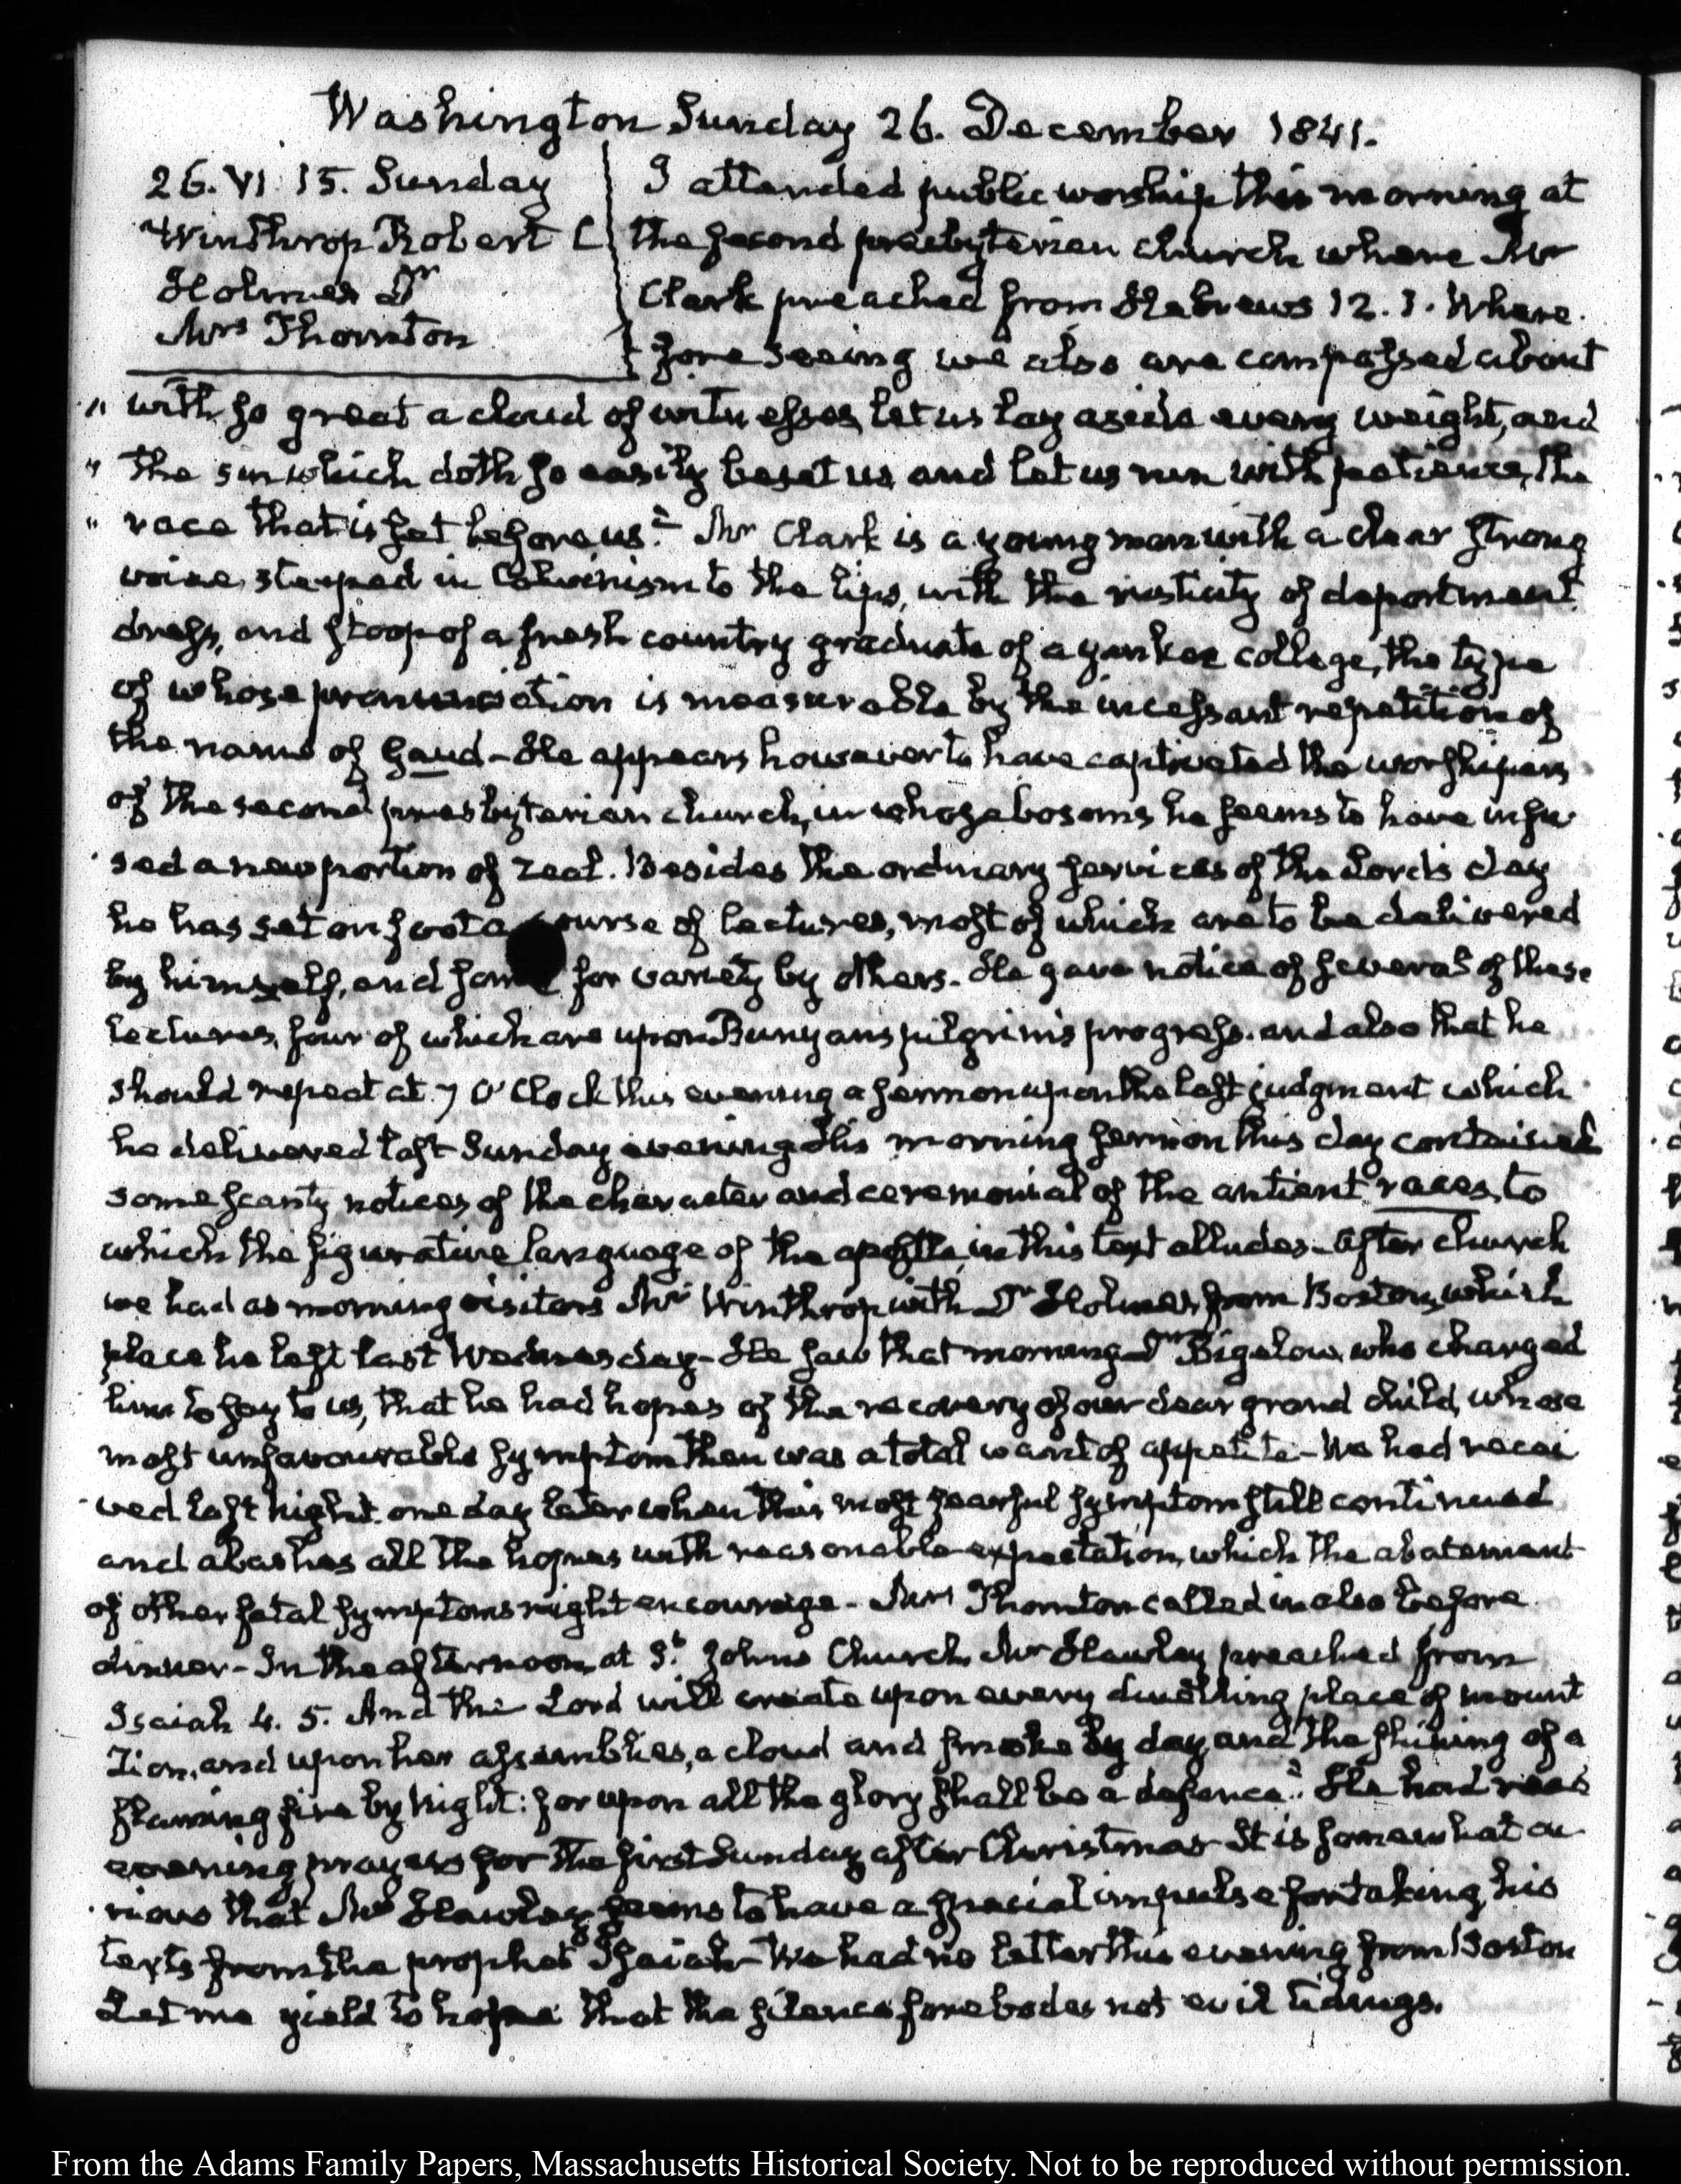 Washington Sunday 26. December 1841.
26. VI. 15. Sunday
Winthrop Robert C
Holmes Dr
Mrs Thornton
I attended public worship this morning at
the second presbyterian church where Mr
Clark preached from Hebrews 12. 1. Where-
fore seeing we also are compassed about
" with so great a cloud of witnesses, let us lay aside every weight, and
" the sin which doth so easily beset us, and let us run with patience, the
" race that is set before us." Mr Clark is a young man with a clear strong
voice, steeped in Calvinism to the lips, with the rusticity of deportment
dress, and stoop of a fresh country graduate of a yankee college, the type
of whose pronunciation is measurable by the incessant repetition of
the name of Gaud - He appears however to have captivated the worshipers
of the second presbyterian church, in whose bosoms he seems to have infu-
sed a new portion of zeal. Besides the ordinary services of the Lord's day
he has set on foot a course of lectures, most of which are to be delivered
by himself, and some for variety by others. He gave notice of several of these
lectures, four of which are upon Bunyans pilgrim's progress. and also that he
should repeat at 7 O'Clock this evening a sermon upon the last judgment which
he delivered last Sunday evening. His morning sermon this day contained
some scanty notices of the character and ceremonial of the antient races, to
which the figurative language of the apostle, in this text alludes - After church
we had as morning visitors Mr Winthrop with Dr Holmes from Boston, which
place he left last Wednesday - He saw that morning Dr Bigelow, who charged
him to say to us, that he had hopes of the recovery of our dear grand child, whose
most unfavourable symptom then was a total want of appetite - We had recei-
ved last night one day later when this most fearful symptom still continued
and abashes all the hopes with reasonable expectation, which the abatement
of other fatal symptoms might encourage - Mrs Thornton called in also before
dinner - In the afternoon, at St. Johns Church, Mr Hawley preached from
Isaiah 4. 5. And the Lord will create upon every dwelling place of mount
Zion, and upon her assemblies, a cloud and smoke by day, and the shining of a
flaming fire by night: for upon all the glory shall be a defence." He had read
evening prayers for the first Sunday after Christmas It is somewhat cu-
rious that Mr Hawley seems to have a special impulse for taking his
texts from the prophet Isaiah - We had no letter this evening from Boston
Let me yield to hope that the silence forebodes not evil tidings.
From the Adams Family Papers, Massachusetts Historical Society. Not to be reproduced without permission.